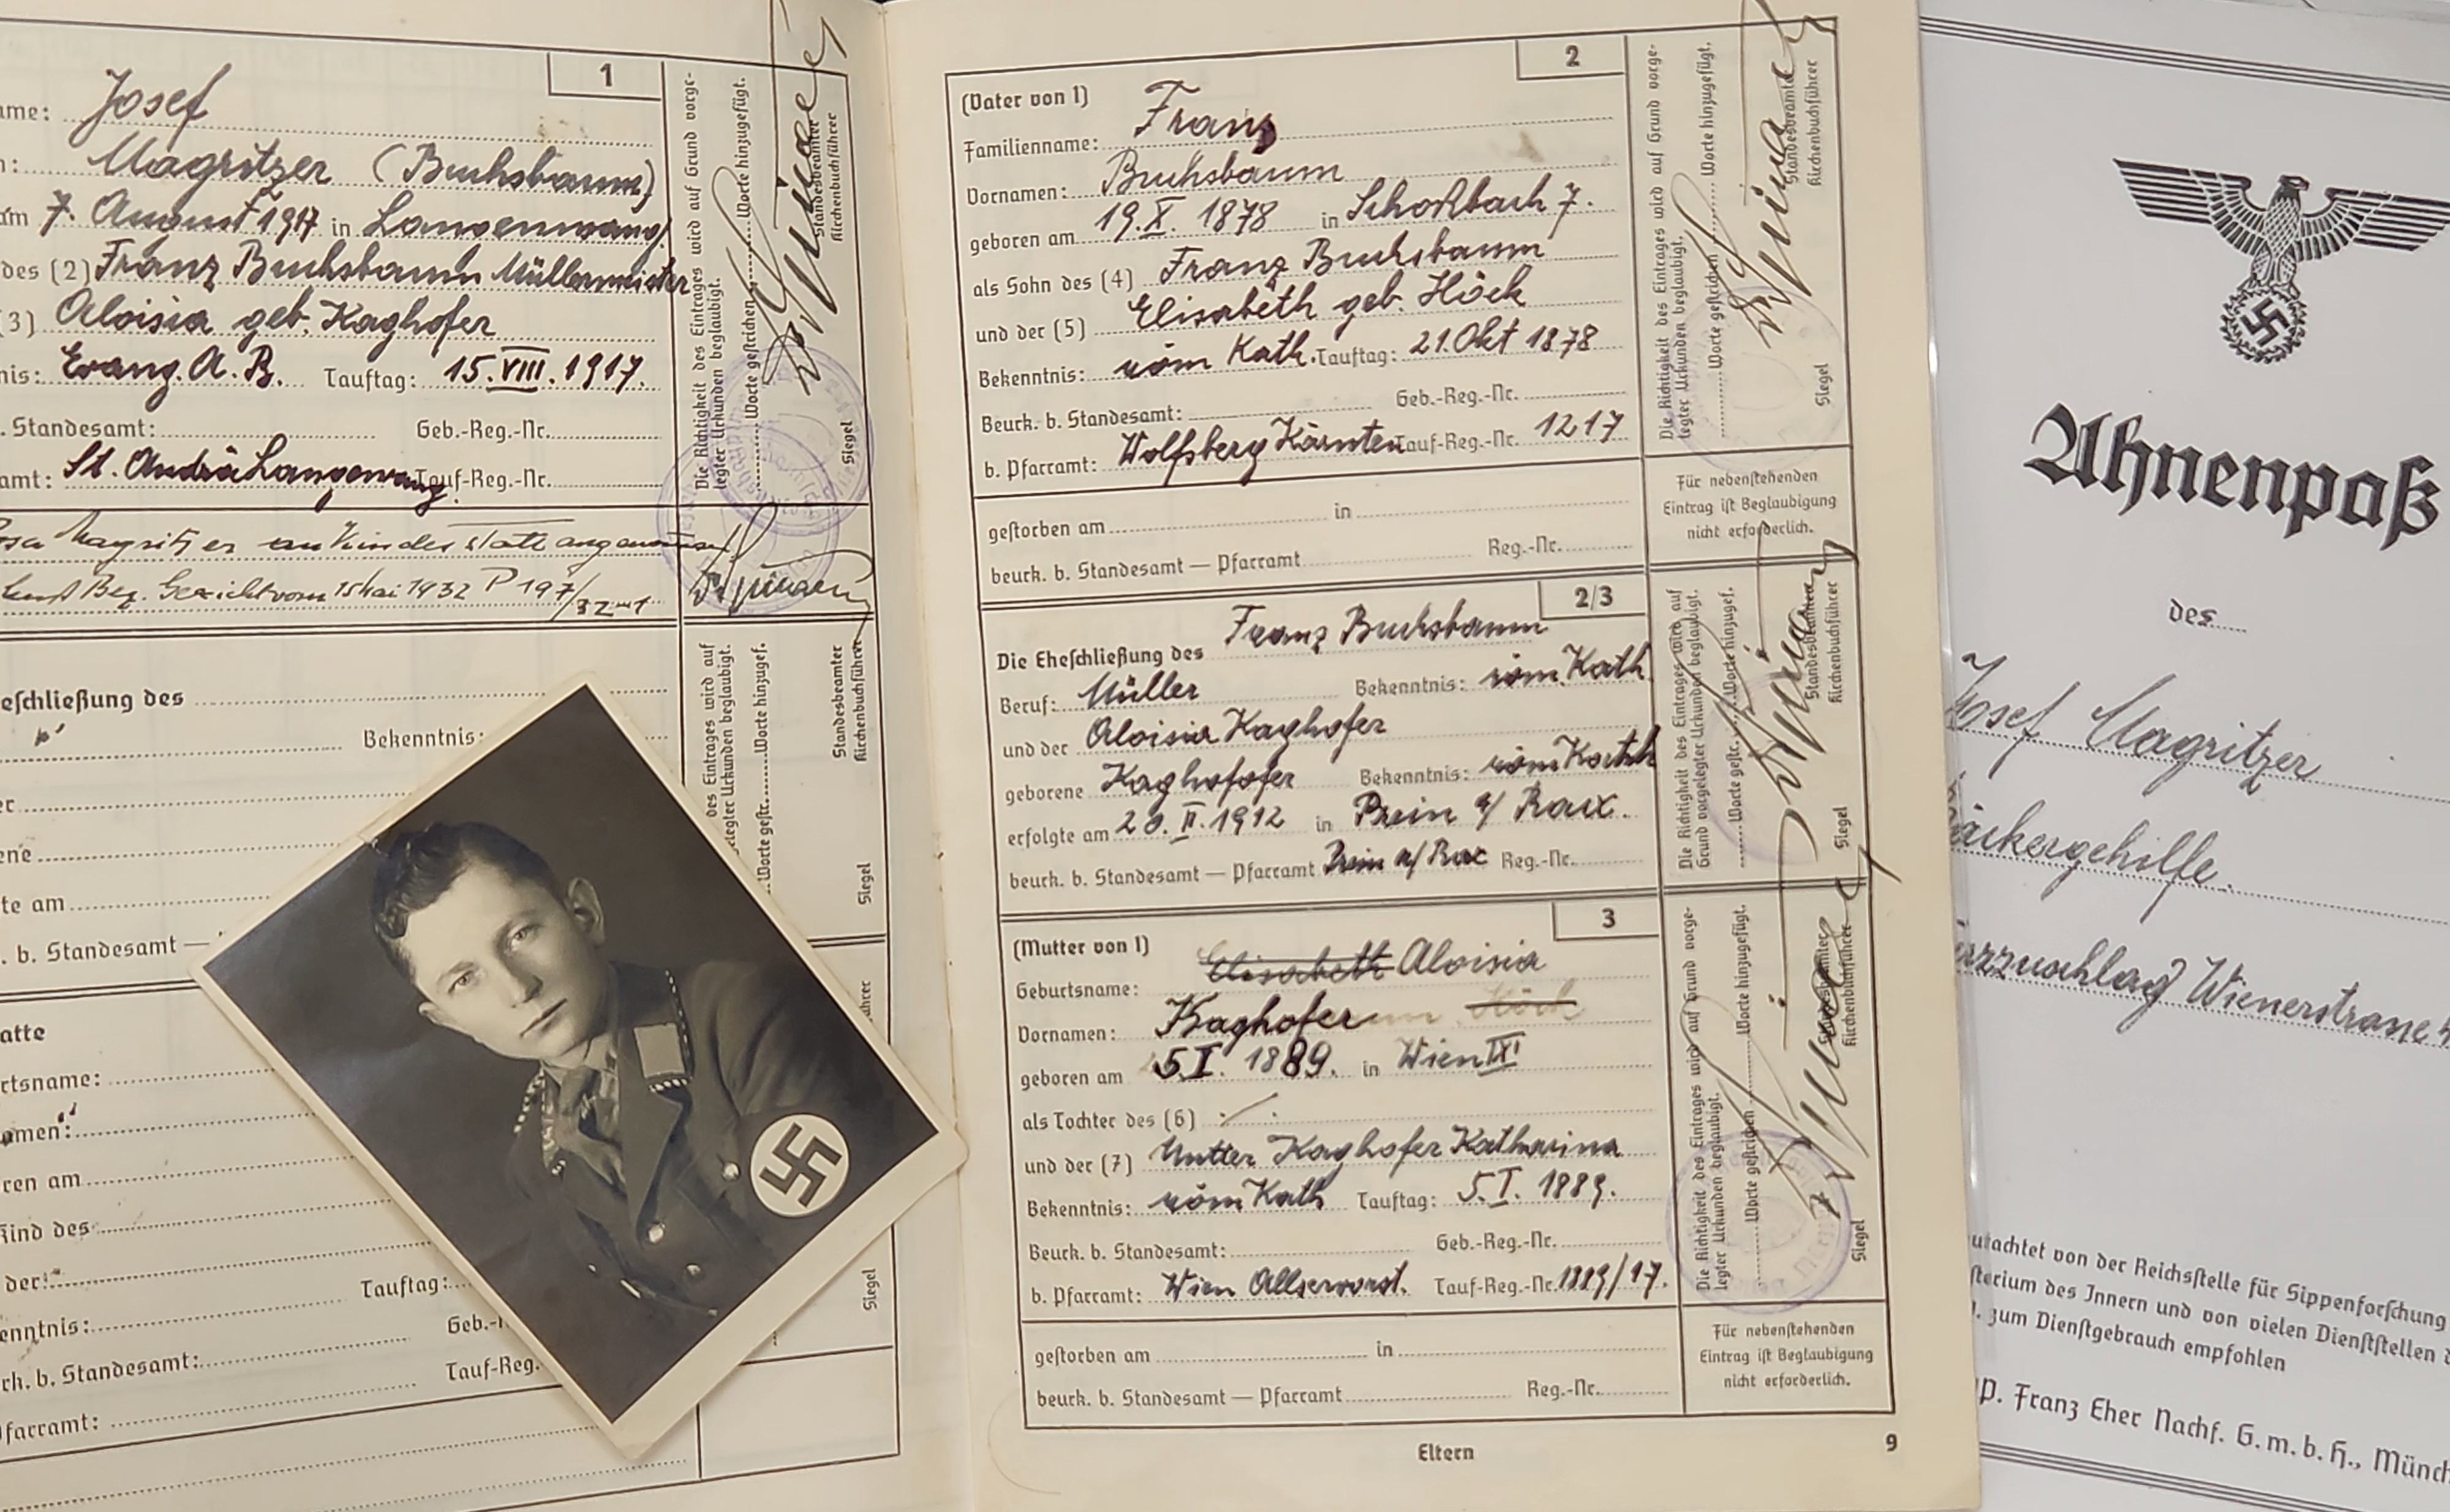 1
ame: Josef
n: Magritzer (Buchsbaum)
am 7. August 1917 in Langenwang
des (2) Franz Buchsbaum Müllermeister
(3) Aloisia geb. Kaghofer
nis: Evang. A. B. Tauftag: 15. VIII. 1917.
. Standesamt: Geb.-Reg.-Nr.
amt: St. Andrä Langenwang Tauf-Reg.-Nr.
Magritzer an Kindes statt angenommen
Bez. Gericht vom 15 Mai 1932 P 197/32
Die Richtigkeit des Eintrages wird auf Grund vorge-
legter Urkunden beglaubigt.
Worte gestrichen Worte hinzugefügt.
Standesbeamter
Kirchenbuchführer
Siegel
eschließung des
Bekenntnis:
er
ene
te am
. b. Standesamt —
des Eintrages wird auf
gelegter Urkunden beglaubigt.
Worte gestr. Worte hinzugef.
Standesbeamter
Kirchenbuchführer
Siegel
atte
rtsname:
amen:
ren am
Kind des
der:
Tauftag:
enntnis:
Geb.-
rk. b. Standesamt:
Tauf-Reg.
Pfarramt:
ührer
Siegel
2
(Vater von 1)
Familienname: Franz
Vornamen: Buchsbaum
geboren am 19. X. 1878 in Schoßbach 7.
als Sohn des (4) Franz Buchsbaum
und der (5) Elisabeth geb. Höck
Bekenntnis: röm Kath. Tauftag: 21. Okt 1878
Beurk. b. Standesamt: Geb.-Reg.-Nr.
b. Pfarramt: Wolfsberg Kärnten Tauf-Reg.-Nr. 1217
gestorben am in
beurk. b. Standesamt — Pfarramt Reg.-Nr.
Die Richtigkeit des Eintrages wird auf Grund vorge-
legter Urkunden beglaubigt.
Worte gestrichen Worte hinzugefügt.
Standesbeamter
Kirchenbuchführer
Siegel
Für nebenstehenden
Eintrag ist Beglaubigung
nicht erforderlich.
2/3
Die Eheschließung des Franz Buchsbaum
Beruf: Müller Bekenntnis: röm. Kath.
und der Aloisia Kaghofer
geborene Kaghofofer Bekenntnis: röm Kath
erfolgte am 20. II. 1912 in Prein a/ Rax.
beurk. b. Standesamt — Pfarramt Prein a/ Rax Reg.-Nr.
Die Richtigkeit des Eintrages wird auf
Grund vorgelegter Urkunden beglaubigt.
Worte gestr. Worte hinzugef.
Standesbeamter
Kirchenbuchführer
Siegel
3
(Mutter von 1)
Geburtsname: Elisabeth Aloisia
Vornamen: Kaghofer Höck
geboren am 5. I. 1889. in Wien IX
als Tochter des (6)
und der (7) Mutter Kaghofer Katharina
Bekenntnis: röm Kath Tauftag: 5. I. 1889.
Beurk. b. Standesamt: Geb.-Reg.-Nr.
b. Pfarramt: Wien Allservorst. Tauf-Reg.-Nr. 1889/17.
gestorben am in
beurk. b. Standesamt — Pfarramt Reg.-Nr.
Die Richtigkeit des Eintrages wird auf Grund vorge-
legter Urkunden beglaubigt.
Worte gestrichen Worte hinzugefügt.
Standesbeamter
Kirchenbuchführer
Siegel
Für nebenstehenden
Eintrag ist Beglaubigung
nicht erforderlich.
Eltern
9
Ahnenpaß
des
Josef Magritzer
äckergehilfe.
rzzuschlag Wienerstrasse
utachtet von der Reichsstelle für Sippenforschung
sterium des Innern und von vielen Dienststellen d
. zum Dienstgebrauch empfohlen
p. Franz Eher Nachf. G. m. b. H., Münch